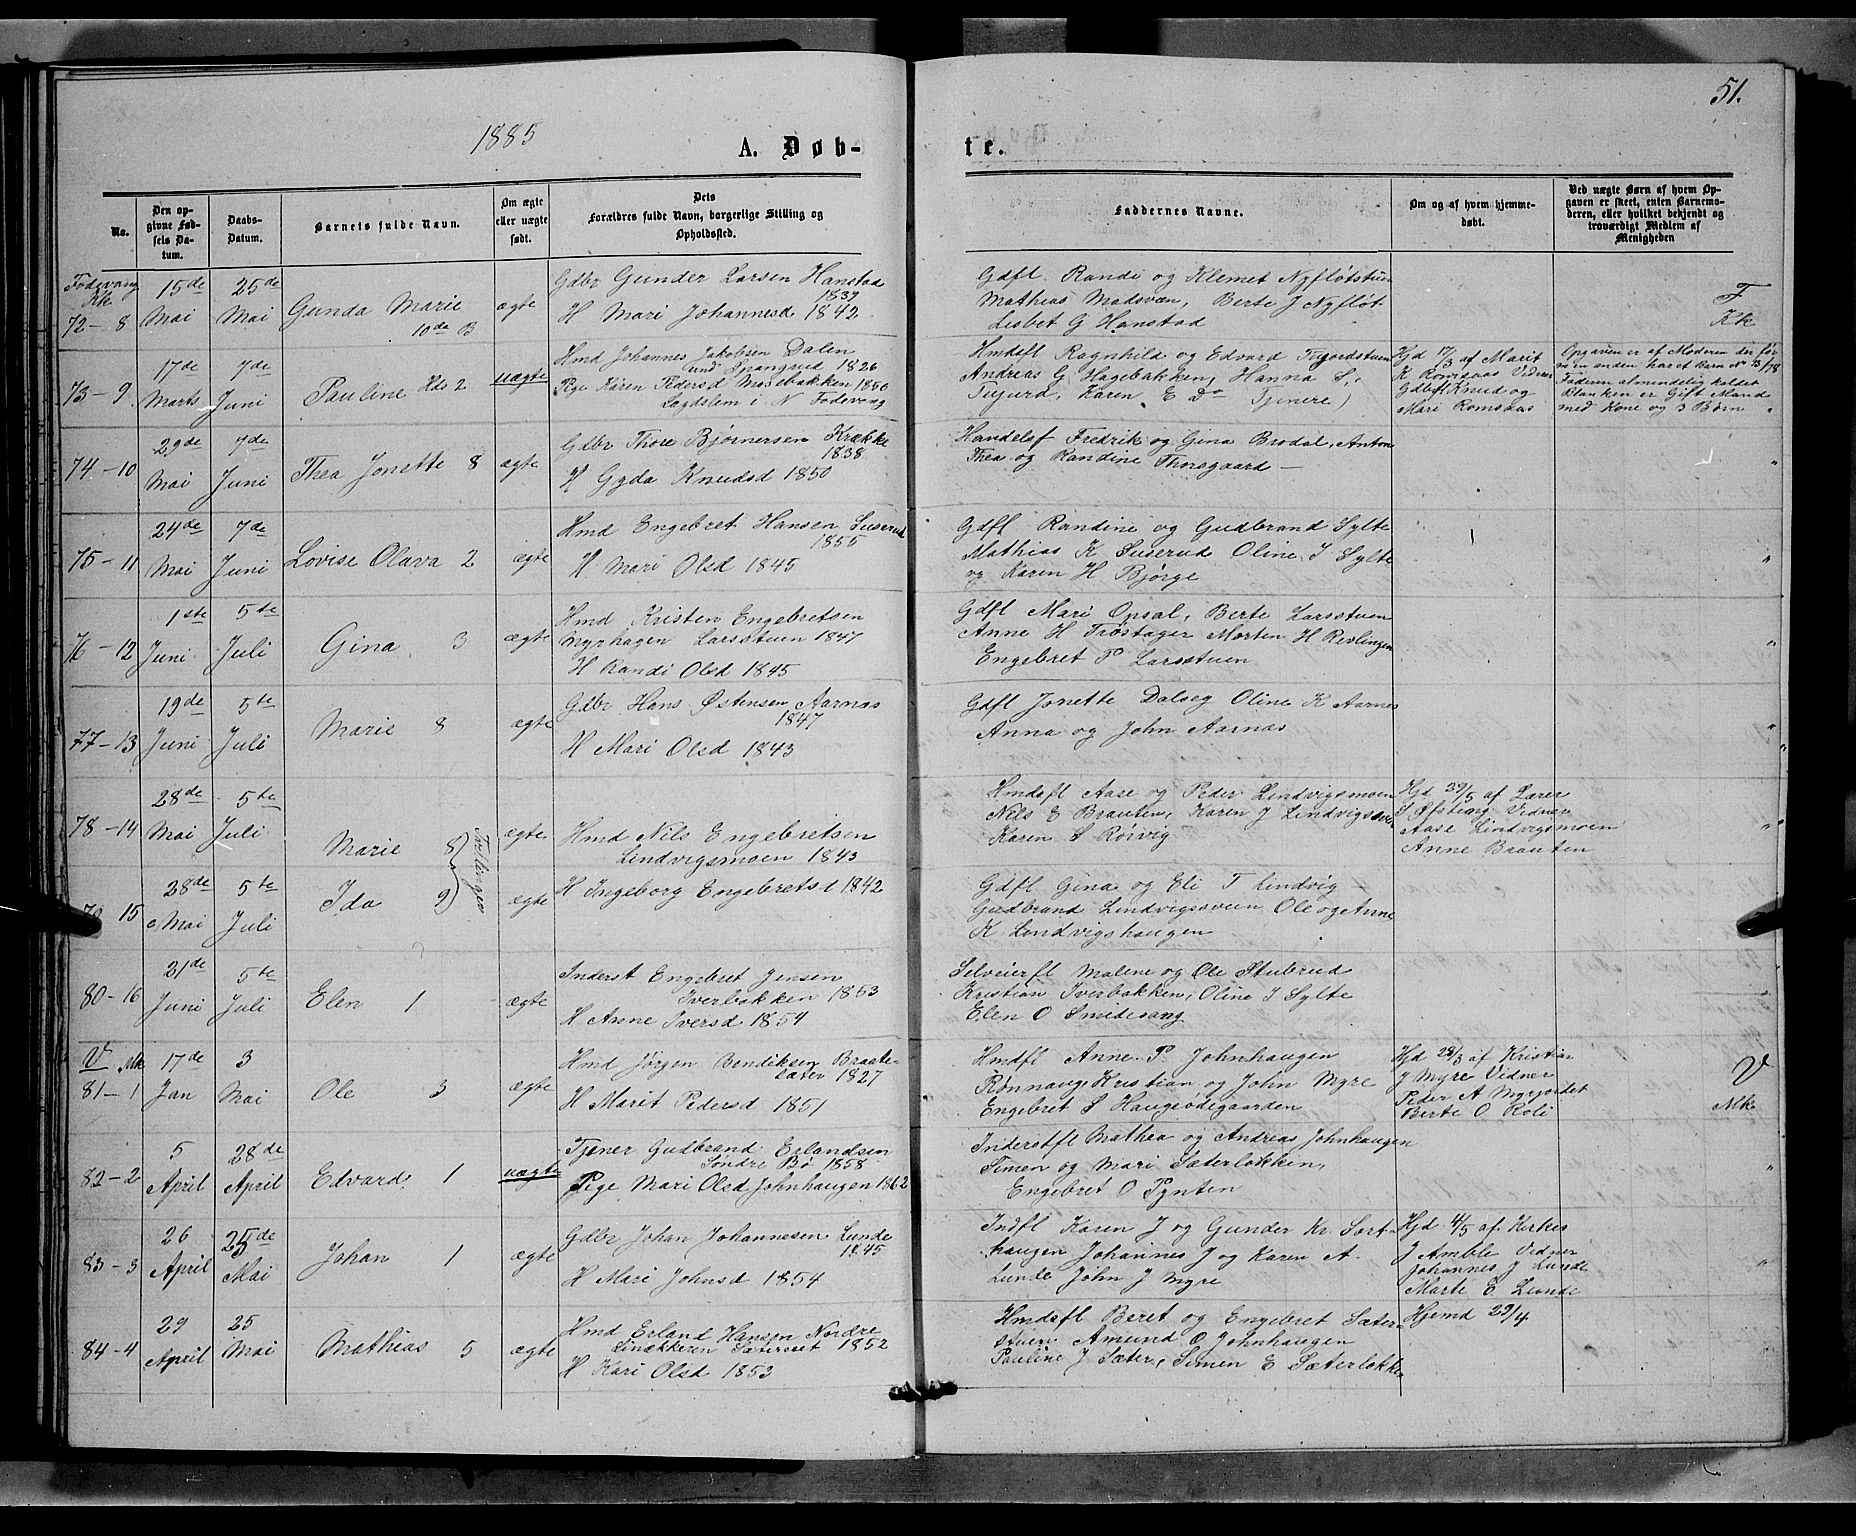 51.
1885
A. Døb-
te.
No.
Den op-
givne Fød-
sels Da-
tum.
Daabs-
Datum.
Barnets fulde Navn.
Om ægte
eller uægte
født.
Dets
Forældres fulde Navn, borgerlige Stilling og
Opholdssted.
Faddernes Navne.
Om og af hvem hjemme-
døbt.
Ved uægte Børn af hvem Op-
gaven er skeet, enten Barnemo-
deren, eller hvilket bekjendt og
troværdigt Medlem af
Menigheden
Fodevang
Kk
72-8
15de
Mai
25de
Mai
Gunda Marie
10de B
ægte
Gdbr Gunder Larsen Hanstad
1839
H Mari Johannesd 1842
Gdfl. Randi og Klemet Nyfløtstuen
Mathias Madsvæn, Berte J Nyfløt
Lisbet G Hanstad
F
Kk
73-9
17de
Marts
7de
Juni
Pauline Hds 2
uægte
Hmd Johannes Jakobsen Dalen
und Spangrud 1826
Pige Karen Pedersd Moebakken 1850
Lagdslem i N Fodevang
Hmdsfl Ragnhild og Edvard
Andreas G Hagebakken, Hanna S,
Karen E Do Tjenere)
Hjd 17/3 af Marit
K Romsaas Vidner
Gdbrf Knud og
Mari Romsaas
Opgaven er af Moderen der før
m en anden har et barn No 13/78
Faderen almindelig kaldet
Blanken er Gift Mand
med Kone og 3 Børn "
74-10
29de
Mai
7de
Juni
Thea Jonette 8
ægte
Gdbr Thore Bjørnersen Krække
1838
H Gyda Knudsd 1850
Handelsf Fredrik og Gina Brodal, Anton
Thea og Randine Thorsgaard —
"
75-11
24de
Mai
7de
Juni
Lovise Olava 2
ægte
Hmd Engebret Hansen Suserud
1855
H Mari Olsd 1845
Gdfl Randine og Gudbrand Sylte
Mathias K Suserud Oline J Sylte
og Karen H Bjørge
"
76-12
1ste
Juni
5te
Juli
Gina 3
ægte
Hmd Kristen Engebretsen
Nyrhagen Larsstuen 1847
H Randi Olsd 1845
Gdfl Mari Opsal, Berte Larsstuen
Anne H Trøstager Morten H Revlingen
Engebret P Larsstuen
"
77-13
19de
Juni
5te
Juli
Marie 8
ægte
Gdbr Hans Østensen Aarnæs
1847
H Mari Olsd 1843
Gdfl Jonette Dalseg Oline K Aarnes
Anna og John Aarnæs
"
78-14
28de
Mai
5te
Juli
Marie 8
Tvillinger
ægte
Hmd Nils Engebretsen
Lindvigsmoen 1843
Hmdsfl Aase og Peder Lindvigsmoen
Nils E Brauten, Karen J Lindvigssveen
Karen S Rorvig
Hjd 29/5 af Lærer
S Øfsteng Vidner
Aase Lindvigsmoen
Anne Brauten
"
79-15
28de
Mai
5te
Juli
Ida 9
ægte
H Ingeborg Engebretsd 1842
Gdfl Gina og Eli T Lindvig
Gudbrand Lindvigssveen Ole og Anne
K Lindvigshaugen
80-16
21de
Juni
5te
Juli
Elen 1
ægte
Inderst Engebret Jensen
Iverbakken 1853
H Anne Iversd 1854
Selveierfl Malene og Ole Stubrud
Kristian Iverbakken, Oline J Sylte
Elen O Smidesang
V Mk
81-1
17de
Jan
3
Mai
Ole 3
ægte
Hmd Jørgen Bendiksen Braate-
sæter 1827
H Marit Pedersd 1851
Hmdfl Anne P. Johnhaugen
Rønnaug, Kristian og John Myre
Engebret S Haugsødegaarden
Hjd 23/3 af Kristian
J Myre Vidner
Peder A Mygjordet
Berte O Roli
V
Mk
82-2
5
April
28de
April
Edvard 1
uægte
Tjener Gudbrand Erlandsen
Søndre Bø 1858
Pige Mari Olsd Johnhaugen 1862
Inderstfl Mathea og Andreas Johnhaugen
Simen og Mari Sæterløkken,
Engebret O Pynten
"
83-3
26
April
25de
Mai
Johan 1
ægte
Gdbr Johan Johannesen Lunde
1845
H Mari Johnsd 1854
Indfl Karen J og Gunder Kr. Sort-
haugen Johannes J og Karen A
Lunde John J Myre
Hjd 4/5 af Kirkes
J Amble Vidner
Johannes J Lunde
Marte E Lunde
"
84-4
29
April
25
Mai
Mathias 5
ægte
Hmd Erland Hansen Nordre
Linækkeren Sæterset 1852
H Kari Olsd 1853
Hmdsfl Beret og Engebret Sæter-
stuen Amund O Johnhaugen
Pauline J Sæter, Simen E Sæterløkken
Hjemd 29/4